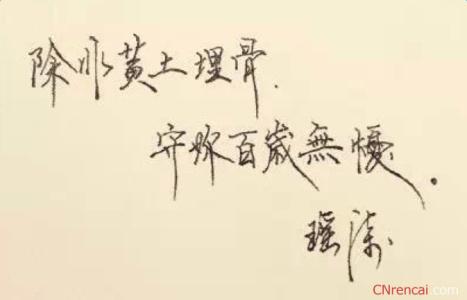 除非黄土埋骨.
守你百歳無憂.
瑶
CNrencai.com